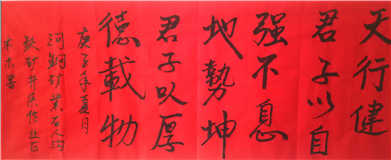 天行健
君子以自
强不息
地勢坤
君子以厚
德載物
庚子年夏月